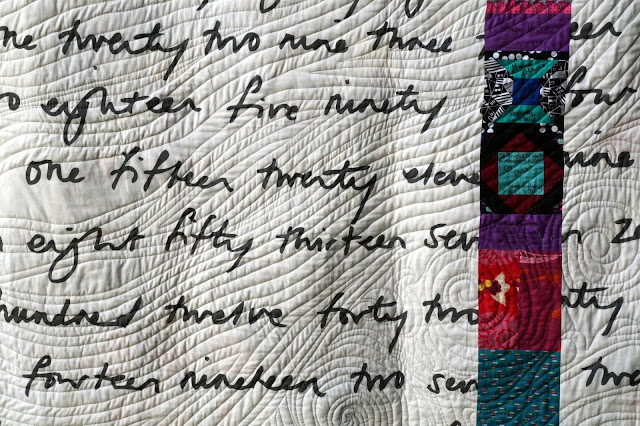 one twenty two nine three
eighteen five ninety four
one fifteen twenty eleven nine
eight fifty thirteen seven
hundred twelve forty two
fourteen nineteen two